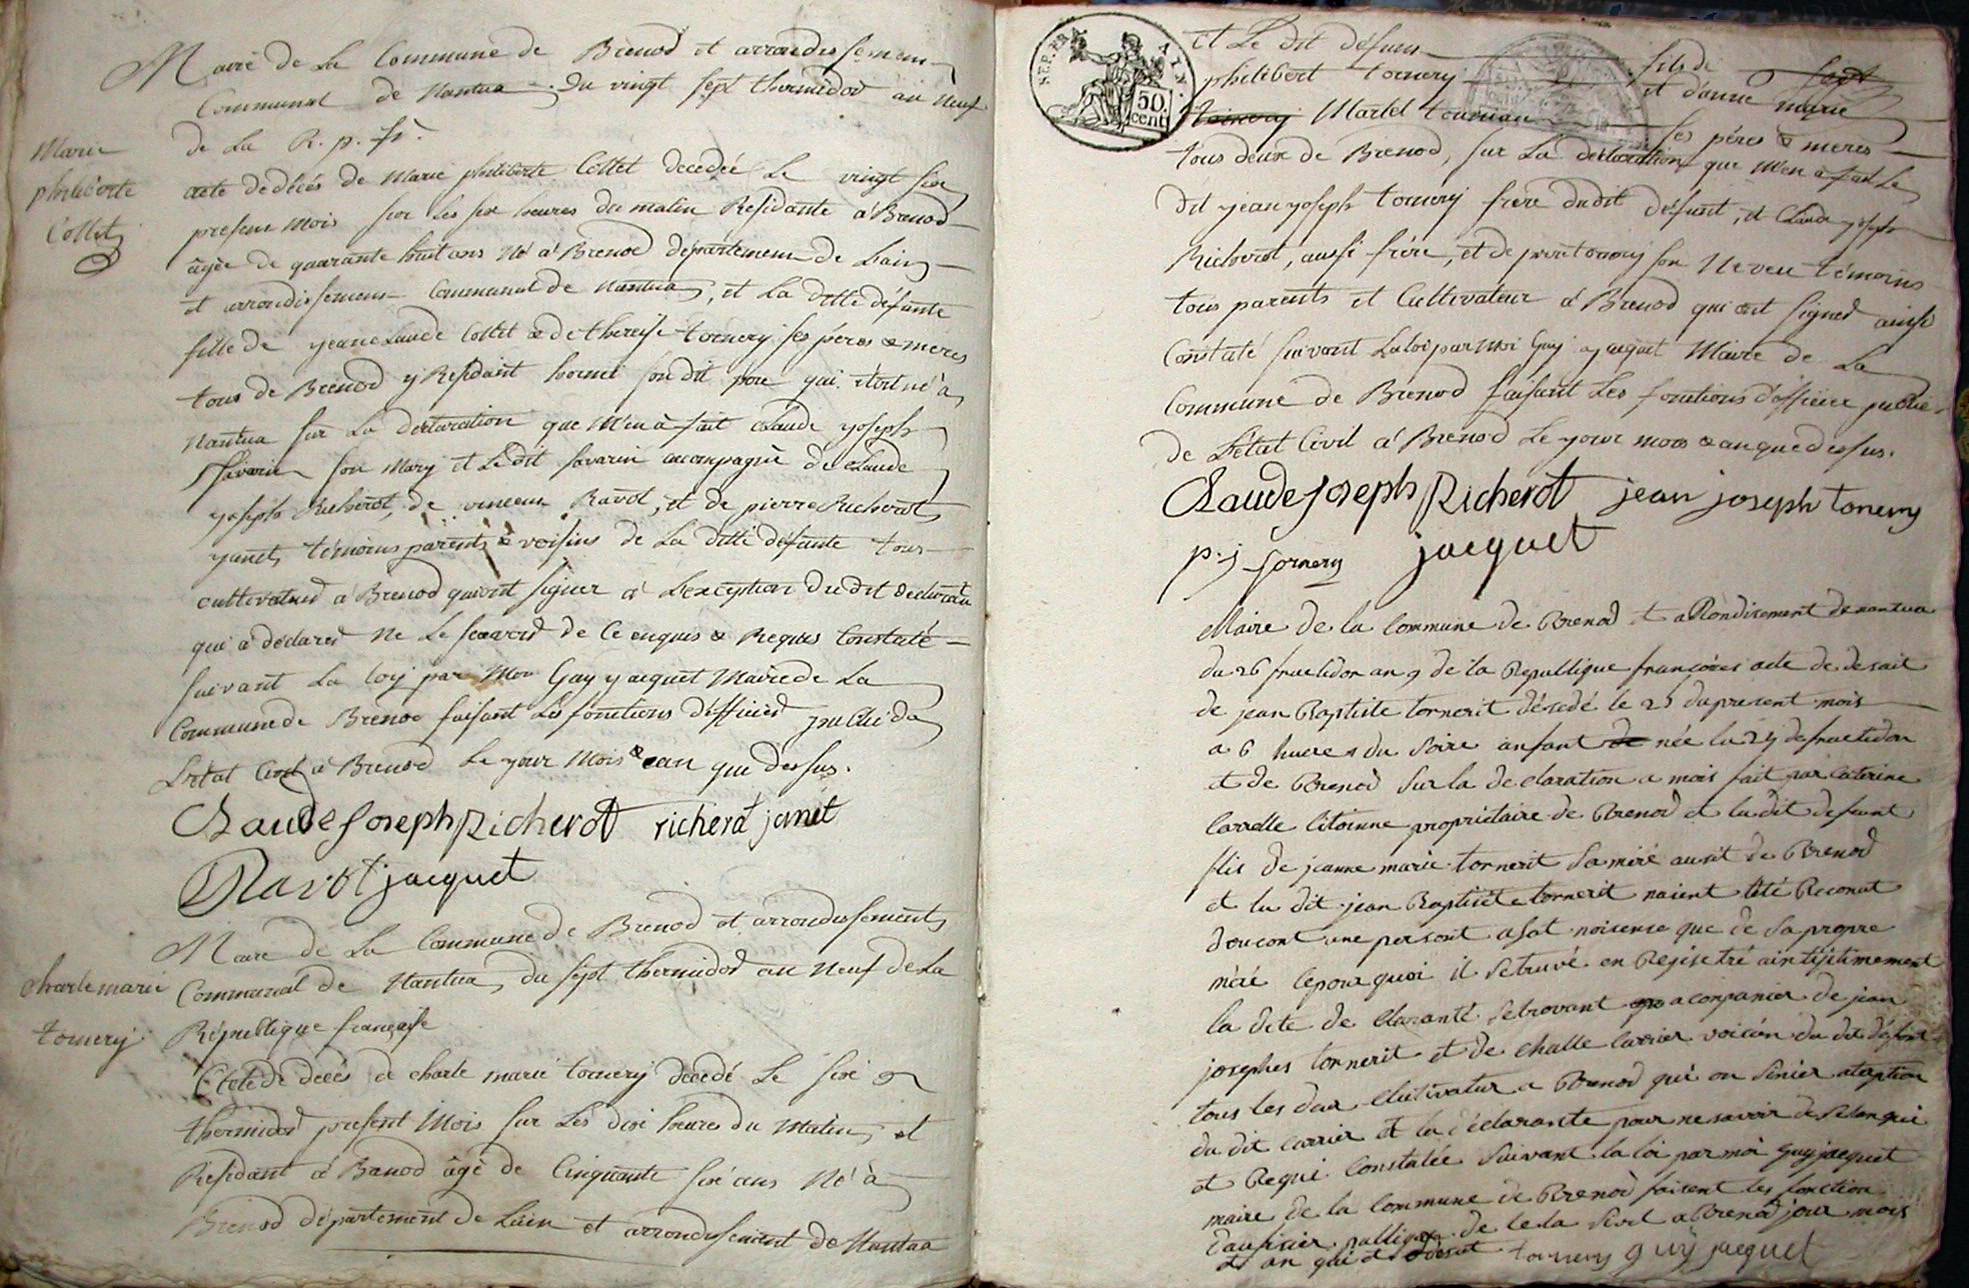 Mairie de La Commune de Brenod et arrondissement
Communal de Nantua. Du vingt sept thermidor an neuf
de La R. p. fr.
Marie
philiberte
Collet
acte de décés de Marie philiberte Collet decedée Le vingt six
present Mois sur les six heures du matin Residante a Brenod
âgée de quarante huit ans né a Brenod département de Lain
et arrondissement Communal de Nantua, et La ditte défunte
fille de jeanclaude Collet & de thereise tornery ses péres & meres
tous de Brenod y Residant hormi son dit pere qui étoit né a
Nantua sur La declaration que M'en à fait Claude yoseph
Savarin son Mary et Le dit savarin acompagné de Claude
yoseph Richerot, de vincent Ravot, et de pierre Richerot
yanet, témoins parents & voisins de La ditte défunte tous
cultivateurs a Brenod qui ont signer a L'exception du dit déclarant
qui a déclaré Ne Le scavoir de Ce enquis & Requis Constaté
suivant La loy par Moy Guy yacquet Maire de La
Commune de Brenod faisant Les fonctions d'officier public de
L'état Civil a Brenod Le your Mois & an que dessus.
Claude Joseph Richerot richerot janet
Ravot jacquet
Maire de La Commune de Brenod et arrondissement
Communal de Nantua, du sept thermidor an Neuf de La
République française
charle marie
tornery
Acte de decés de charle marie tornery decedé Le six
thermidor present Mois sur Les dix heures du Matin, et
Residant a Brenod âgé de Cinquante six ans Né à
Brenod département de Lain et arrondissement de Nantua
REP. FRA. AIN. 50 cent
et Le dit défunt fils de
philibert tornery et d'anne marie
Martel tous
ses péres & meres
tous deux de Brenod, sur La déclaration que M'en a fait Le
dit yean yoseph tornery frère du dit défunt, et Claude yoseph
Richerot, aussi frére, et de tornery son Neveu témoins
tous parents et Cultivateur a Brenod qui ont signed ainsi
Constaté suivant La loi par Moi Guy yacquet Maire de La
Commune de Brenod faisant Les fonctions d'officier public
de L'état Civil a Brenod Le your mois & an que dessus.
Claude Joseph Richerot jean joseph tornery
p. j tornery jacquet
Maire de la Commune de Brenod et aRondisement de nantua
du 26 fructidor an 9 de la Republique françoies acte de desait
de jean Baptiste tornerit désedé le 25 du present mois
a 6 huere du soire anfant de née le 24 de fructidor
et de Brenod sur la declaration a mois fait par Caterine
Carrelle Citoienne propriétaire de Brenod et ludit defunt
fils de jeanne marie tornerit sa méré ausit de Brenod
et lu dit jean Baptiste tornerit naient tété Reconut
doucont une persont a set noisense que de sa propre
méré cepourquoi il setruvé en Registré aintijitimement
la dete de claranté setrovant aconpanier de jean
josephes tornerit et de challe Carrier voicien du dit défont
tous les daux Cultivatur a Brenod qui on sinier ataption
du dit Carrier et la déclarante pour ne savoir de Selan qui
et Requi Constatée suivant la loi par moi Guy jacquet
maire de la Commune de Brenod faisent les fonction
daufisier pullique de le la sivil a Brenod jour mois
et an qui et desut tornery guy jacquet